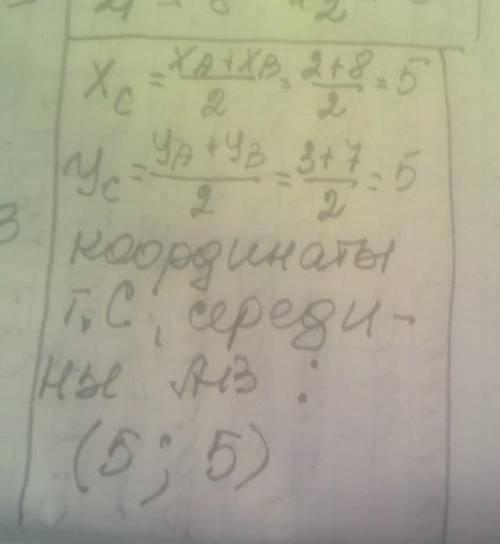 x_C = (x_A + x_B)/2 = (2+8)/2 = 5
y_C = (y_A + y_B)/2 = (3+7)/2 = 5
координаты
т. С, середи-
ны АВ :
(5; 5)